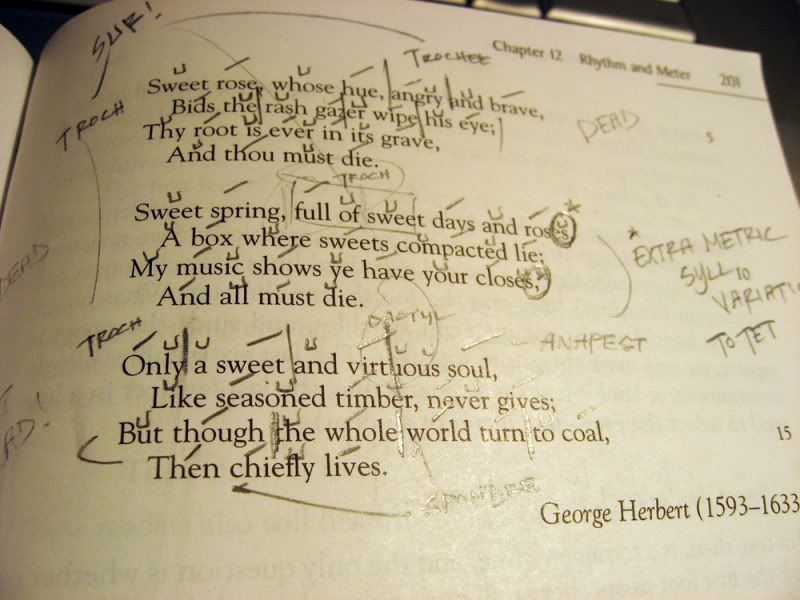 SUR!
TROCHEE
Chapter 12 Rhythm and Meter 201
Sweet rose, whose hue, angry and brave,
Bids the rash gazer wipe his eye;
TROCH
DEAD
5
Thy root is ever in its grave,
And thou must die.
TROCH
Sweet spring, full of sweet days and roses, *
A box where sweets compacted lie;
* EXTRA METRIC
SYLL 10
VARIATI
TO TET
My music shows ye have your closes,
*
And all must die.
DEAD
DACTYL
TROCH
ANAPEST
Only a sweet and virtuous soul,
Like seasoned timber, never gives;
But though the whole world turn to coal,
15
Then chiefly lives.
SPONDEE
George Herbert (1593–1633